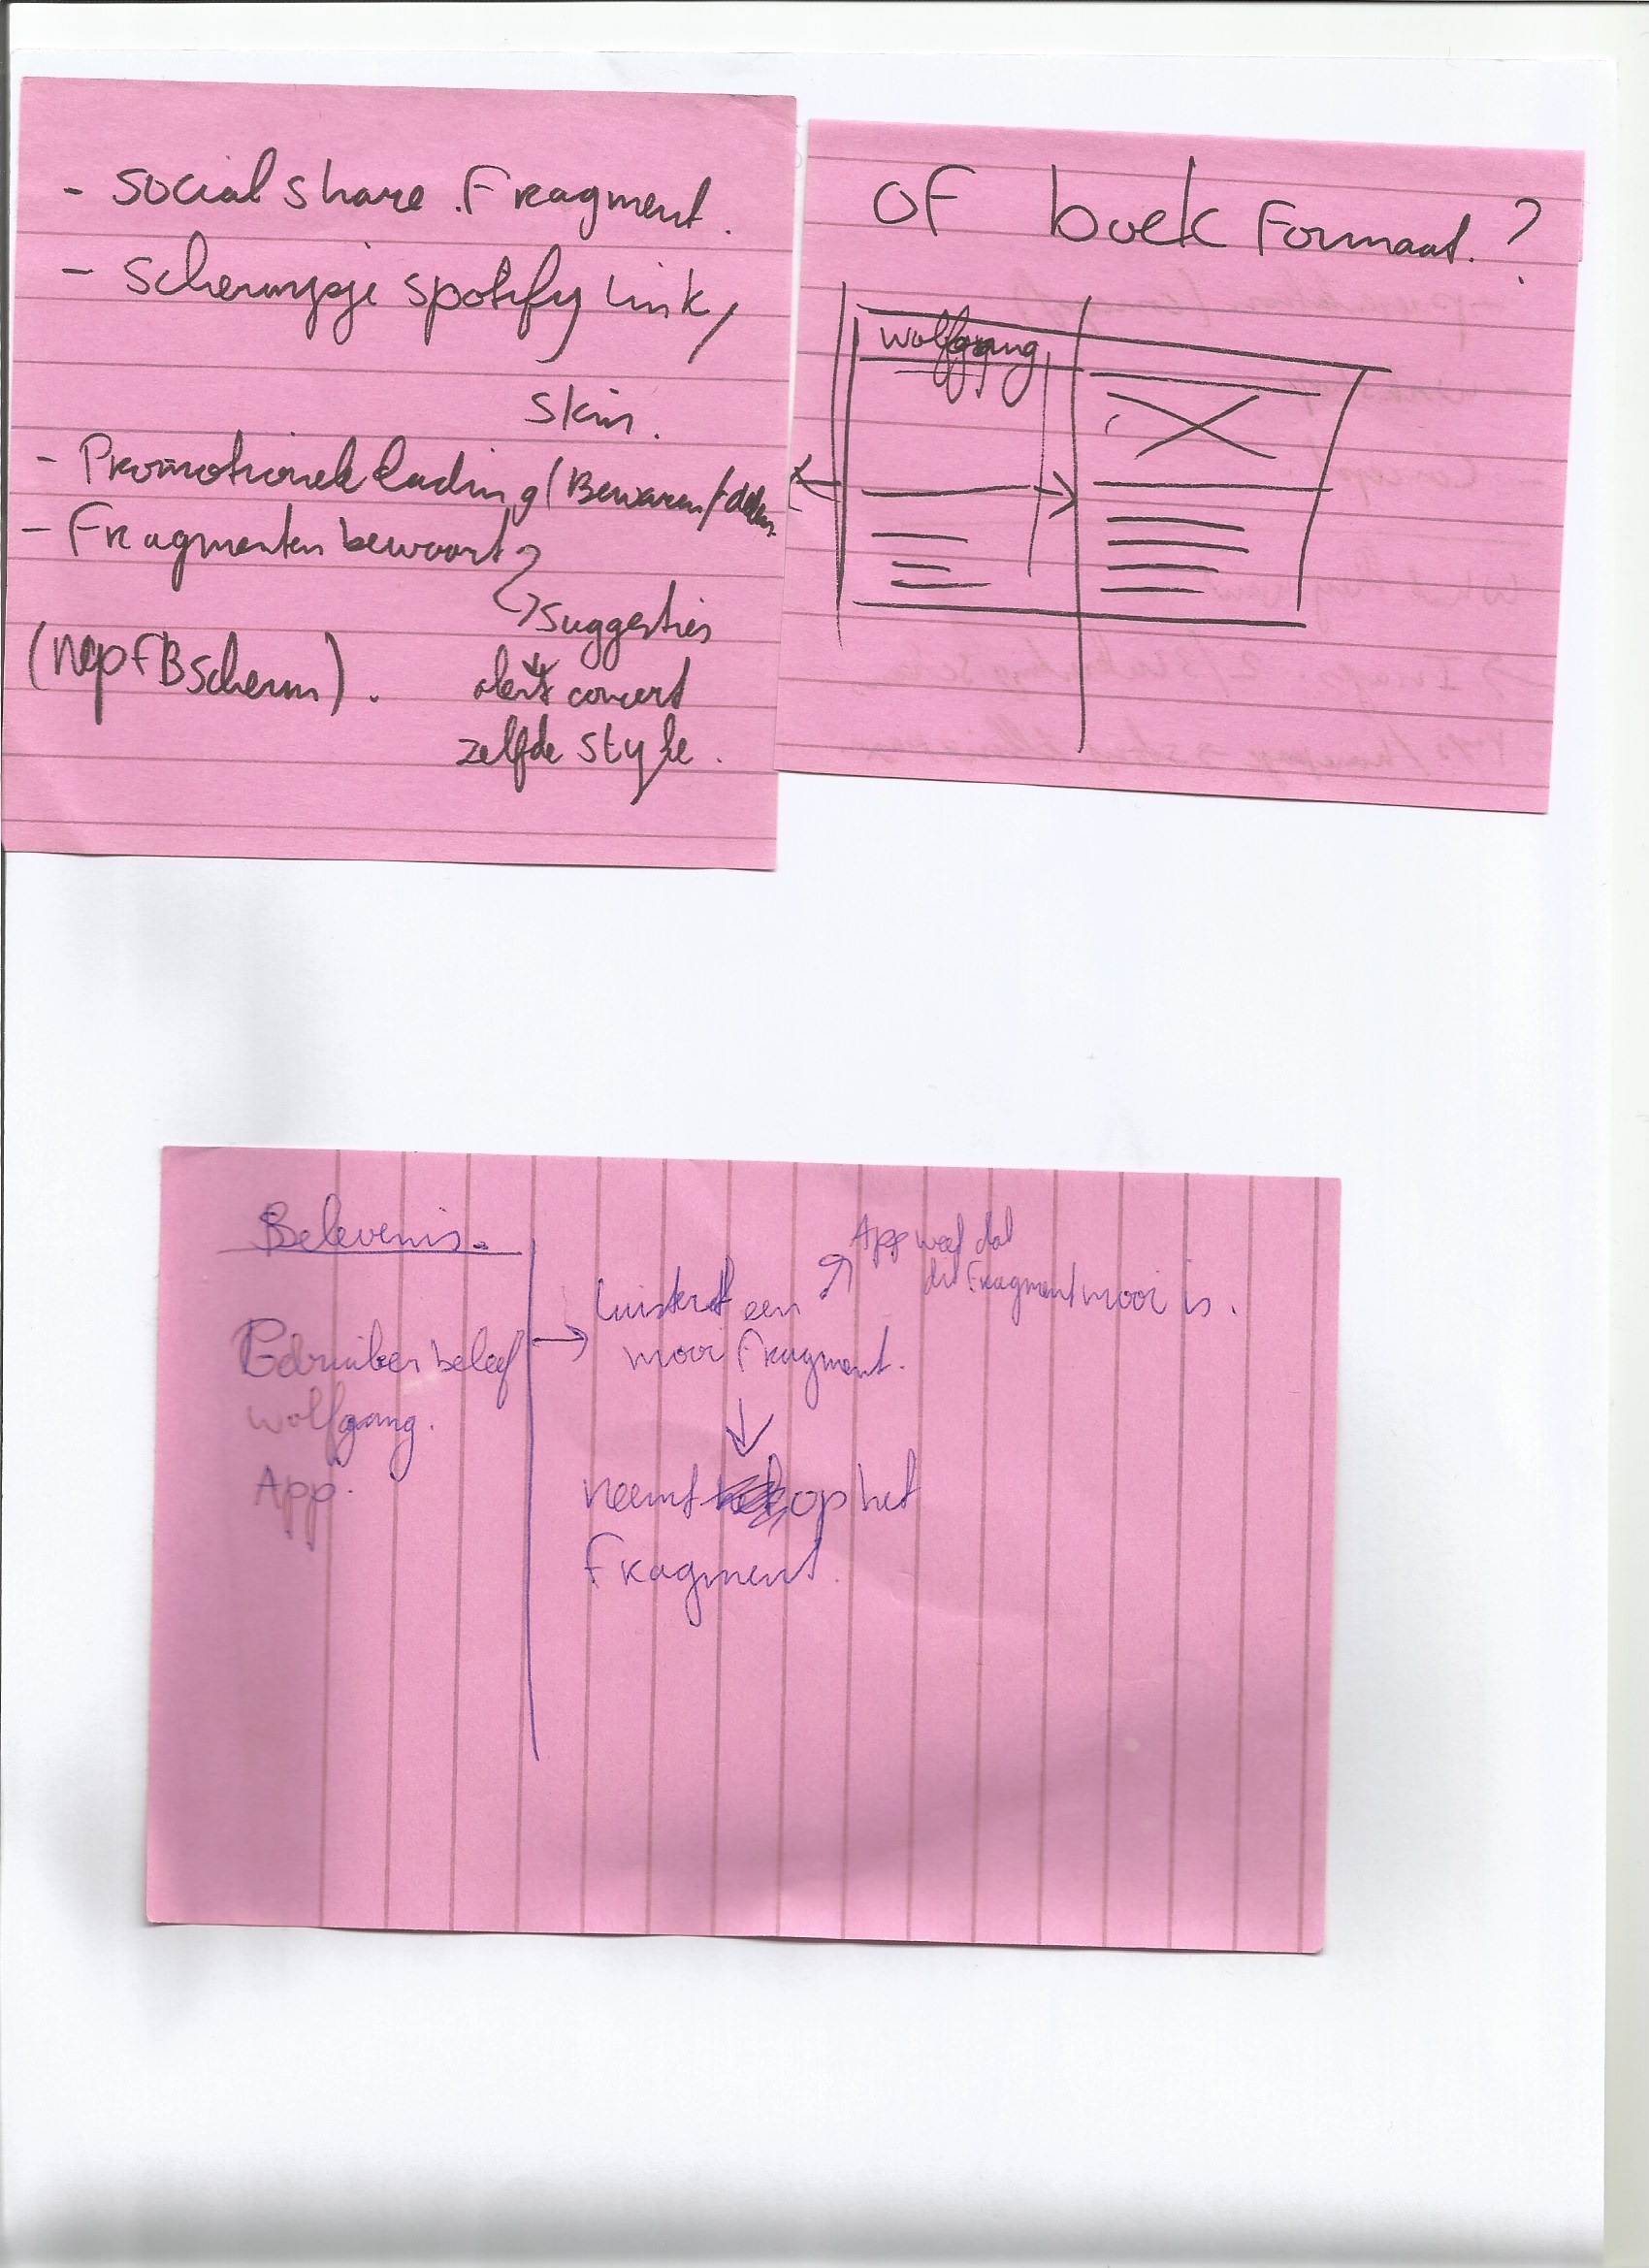 - social share Fragment.
- schermpje spotify link/
skin.
- Promotionele lading (Bewaren/delen
- Fragmenten bewaart
suggesties
alert concert
zelfde style.
(nep FB scherm).
OF boek Formaat.?
wolfgang
Belevenis.
Gebruiker beleef
wolfgang.
App.
luistert een
mooi Fragment.
App weet dat
dit Fragment mooi is.
neemt op het
Fragment.